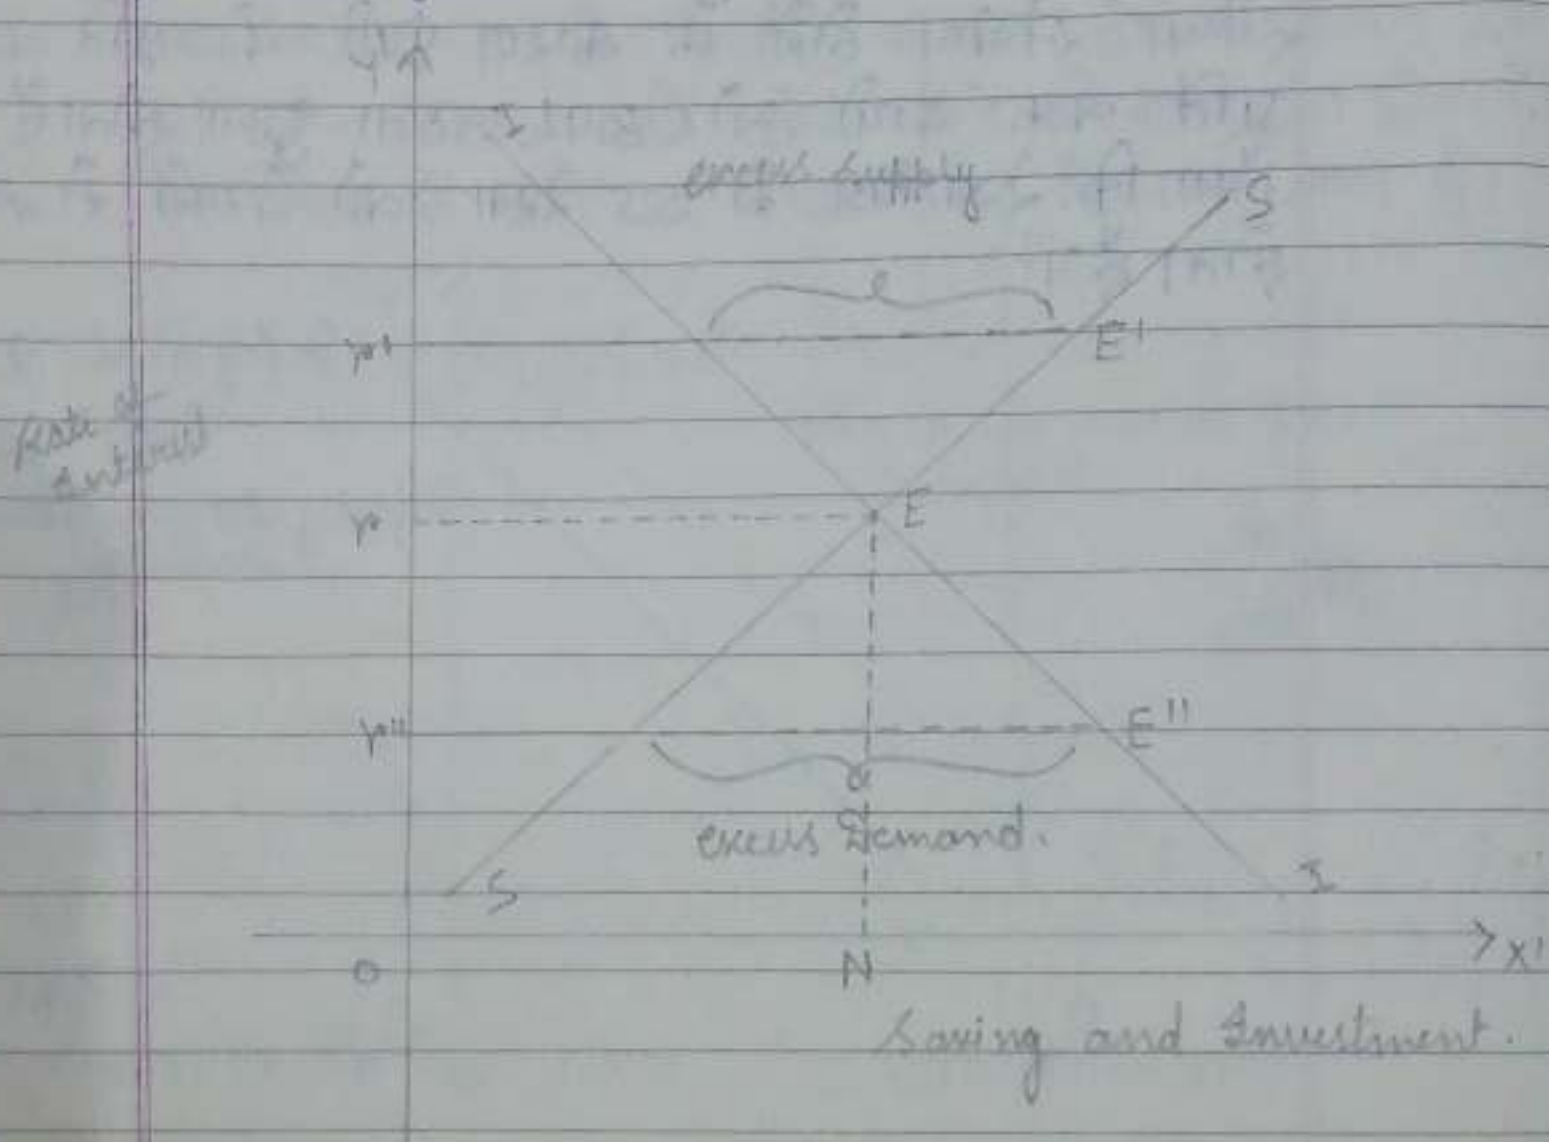 Y
I
excess supply
S
r'
E'
Rate of
Interest
r
E
r"
E"
excess Demand.
S
I
O
N
X'
Saving and Investment.